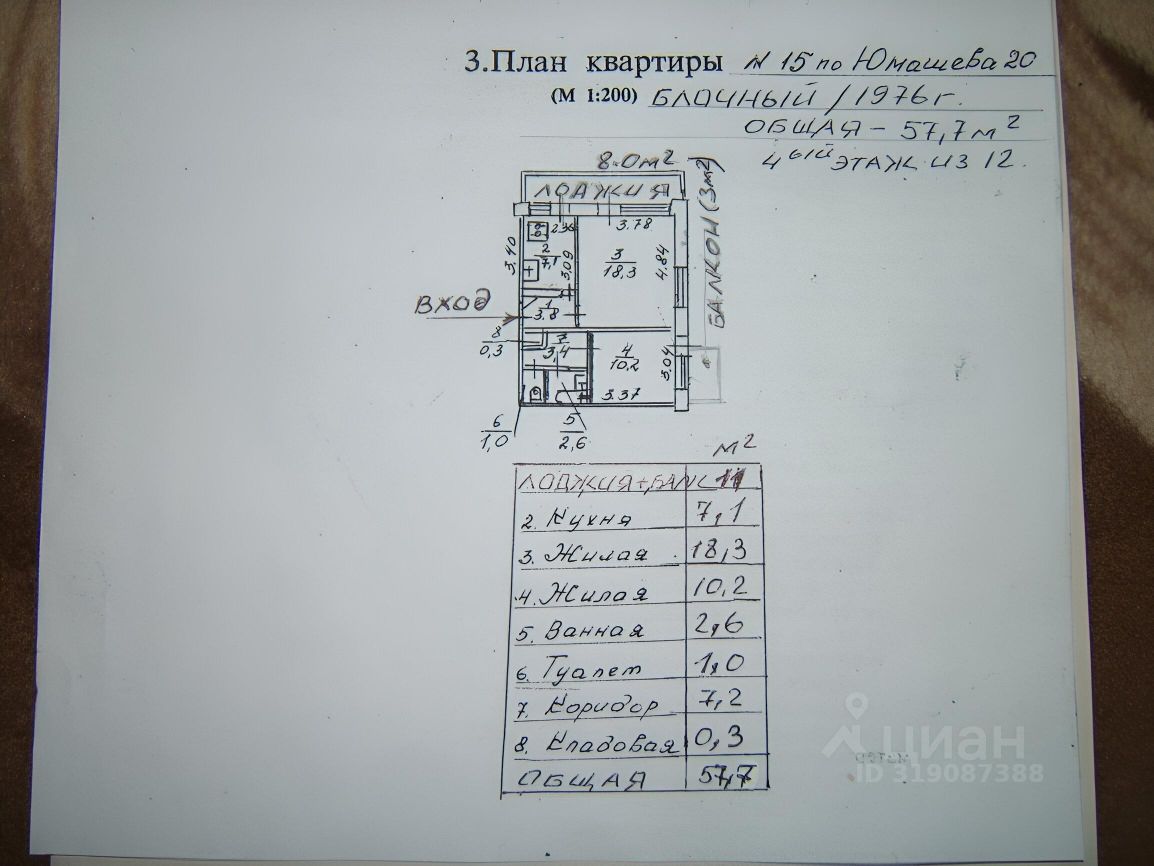 3.План квартиры N 15 по Юмашева 20
(М 1:200) БЛОЧНЫЙ / 1976г.
ОБЩАЯ - 57,7 м²
4ый ЭТАЖ ИЗ 12.
8.0м²
ЛОДЖИЯ
БАЛКОН (3м²)
2.36
3.78
3.40
2
7,1
3.09
3
18,3
4.84
ВХОД
1
3.8
8
0,3
7
3,4
4
10,2
3.04
3.37
6
1,0
5
2,6
м²
ЛОДЖИЯ+БАЛК 11
2. Кухня 7,1
3. Жилая 18,3
4. Жилая 10,2
5. Ванная 2,6
6. Туалет 1,0
7. Коридор 7,2
8. Кладовая 0,3
ОБЩАЯ 57,7
циан
ID 319087388